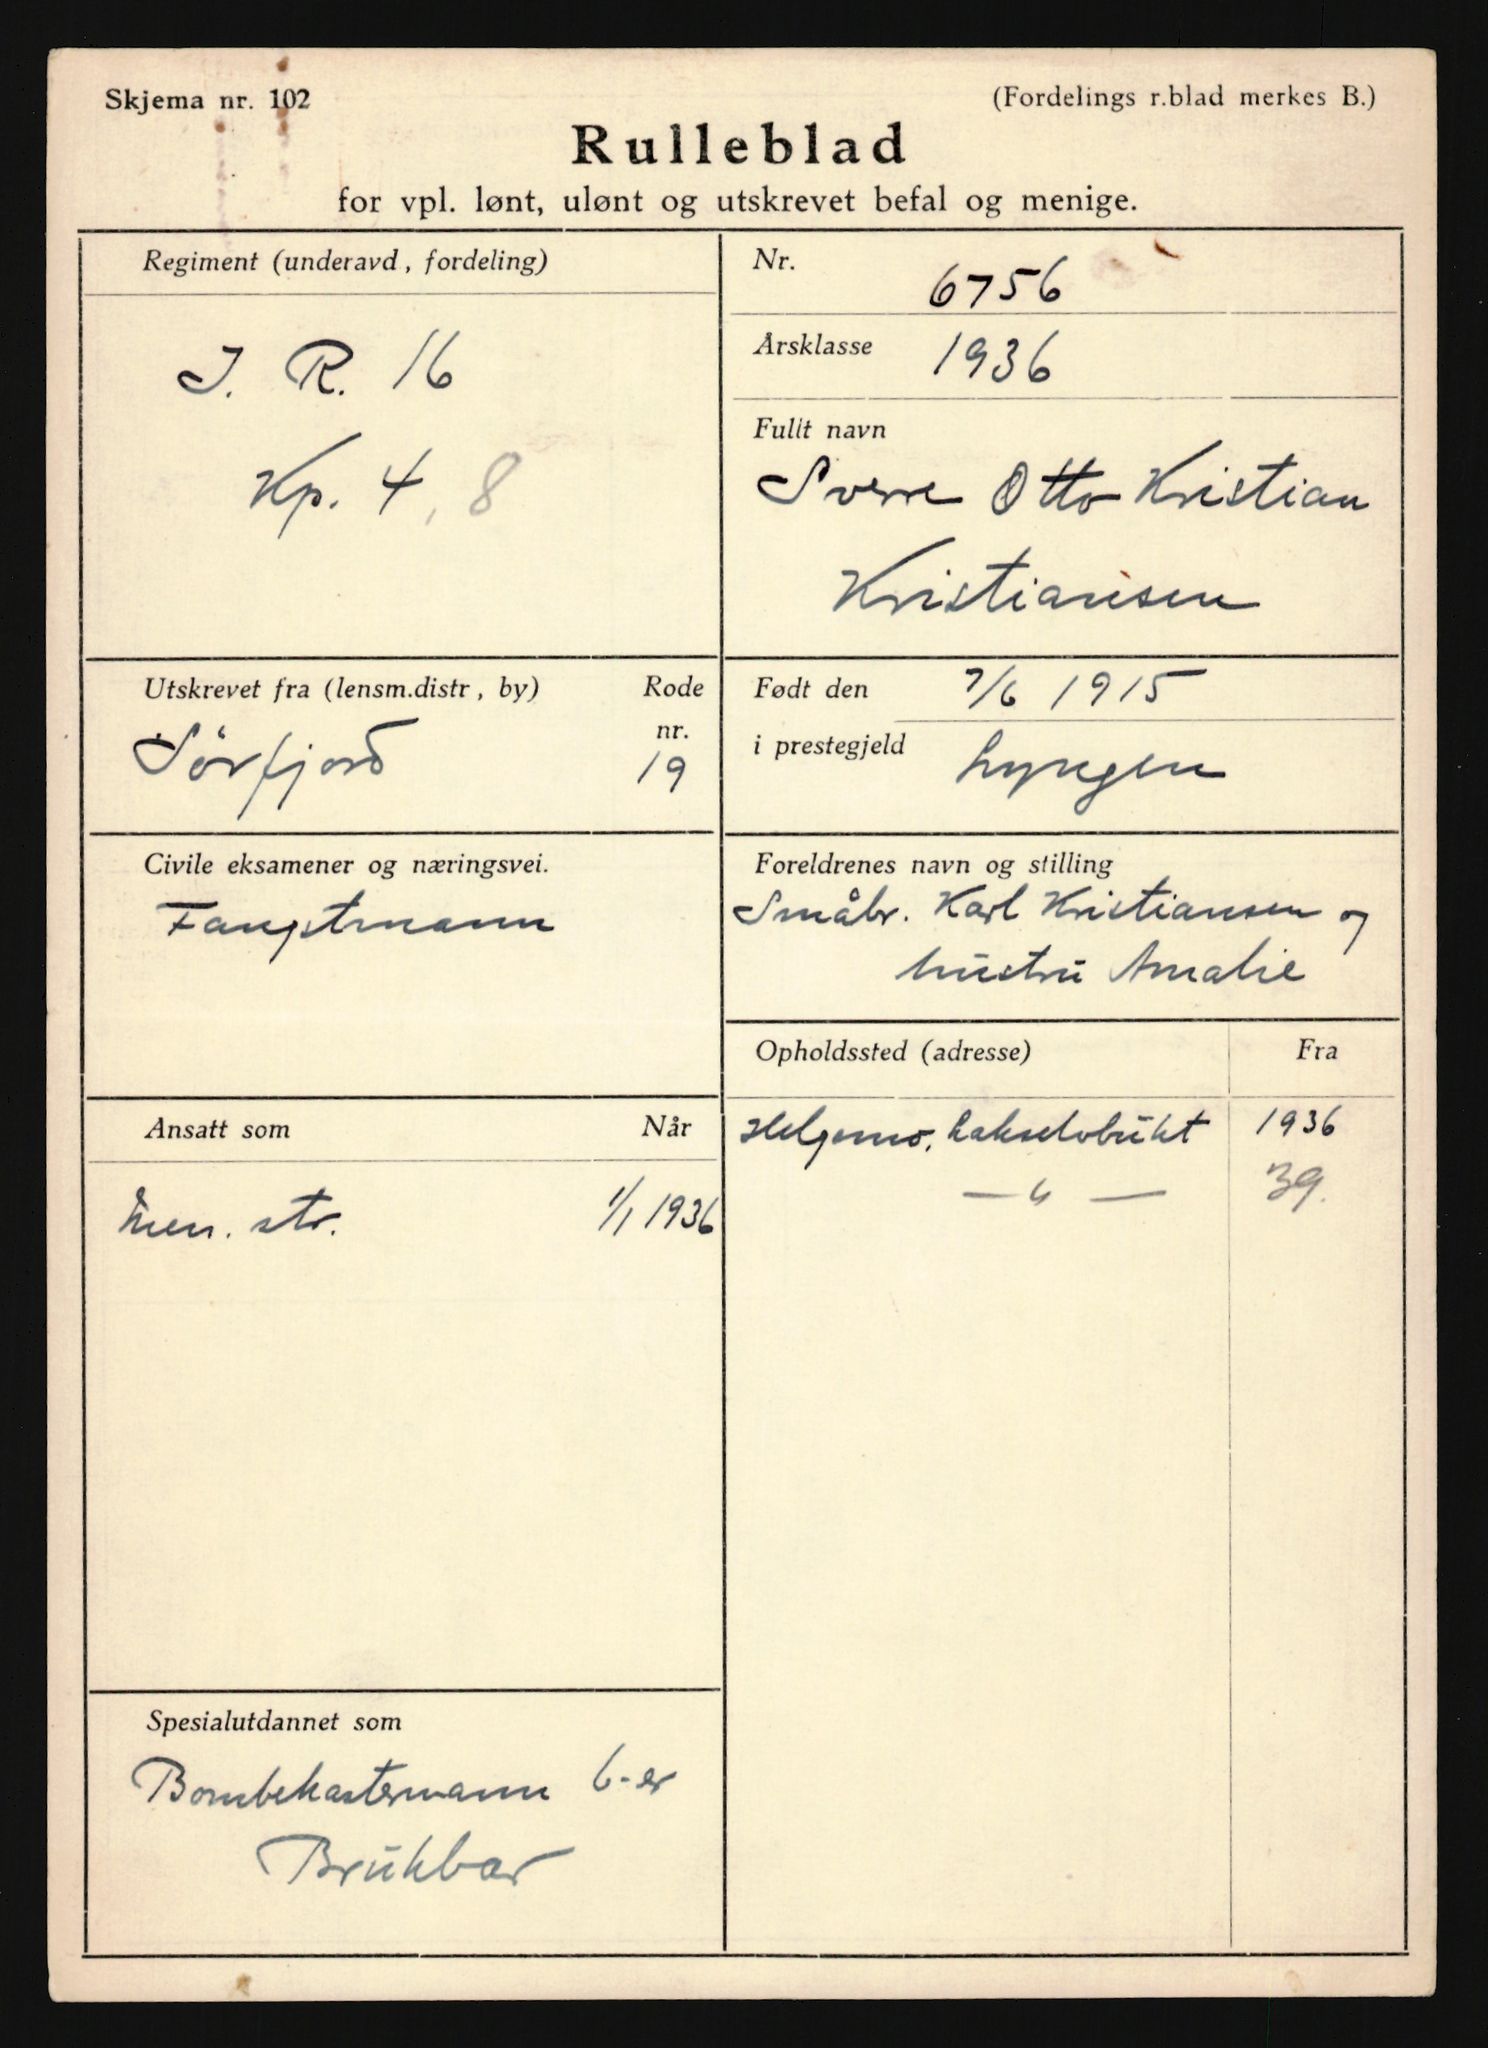 Skjema nr. 102
(Fordelings r.blad merkes B.)
Rulleblad
for vpl. lønt, ulønt og utskrevet befal og menige.
Regiment (underavd, fordeling)
I. R. 16
Kp. 4, 8
Nr. 6756
Årsklasse 1936
Fullt navn
Sverre Otto Kristian
Kristiansen
Utskrevet fra (lensm.distr, by)
Rode
nr.
Sörfjord
19
Født den 7/6 1915
i prestegjeld Lyngen
Civile eksamener og næringsvei.
Fangstmann
Foreldrenes navn og stilling
Småbr. Karl Kristiansen og
hustru Amalie
Opholdssted (adresse)
Fra
Helgemo, Lakselvbukt 1936
— " — 39.
Ansatt som
Når
Men. str. 1/1 1936
Spesialutdannet som
Bombekastermann 6-er
Brukbar